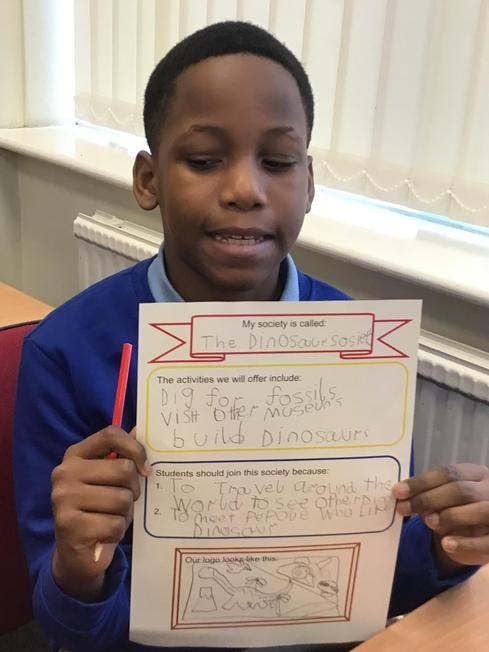 My society is called:
The Dinosaur sosiet
The activities we will offer include:
Dig for fossils
visit other museums
build Dinosaurs
Students should join this society because:
1. To Travel around the
World to see other Dino
2. To meet Pepole who like
Dinosaur
Our logo looks like this: